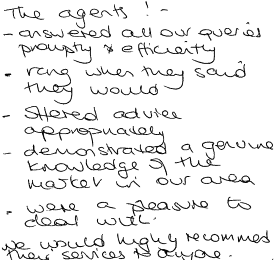 The agents :-
- answered all our queries
promptly & efficiently
• rang when they said
they would
- offered advice
appropriately
- demonstrated a genuine
knowledge of the
market in our area
- were a pleasure to
deal with.
We would highly recommend
their services to anyone.